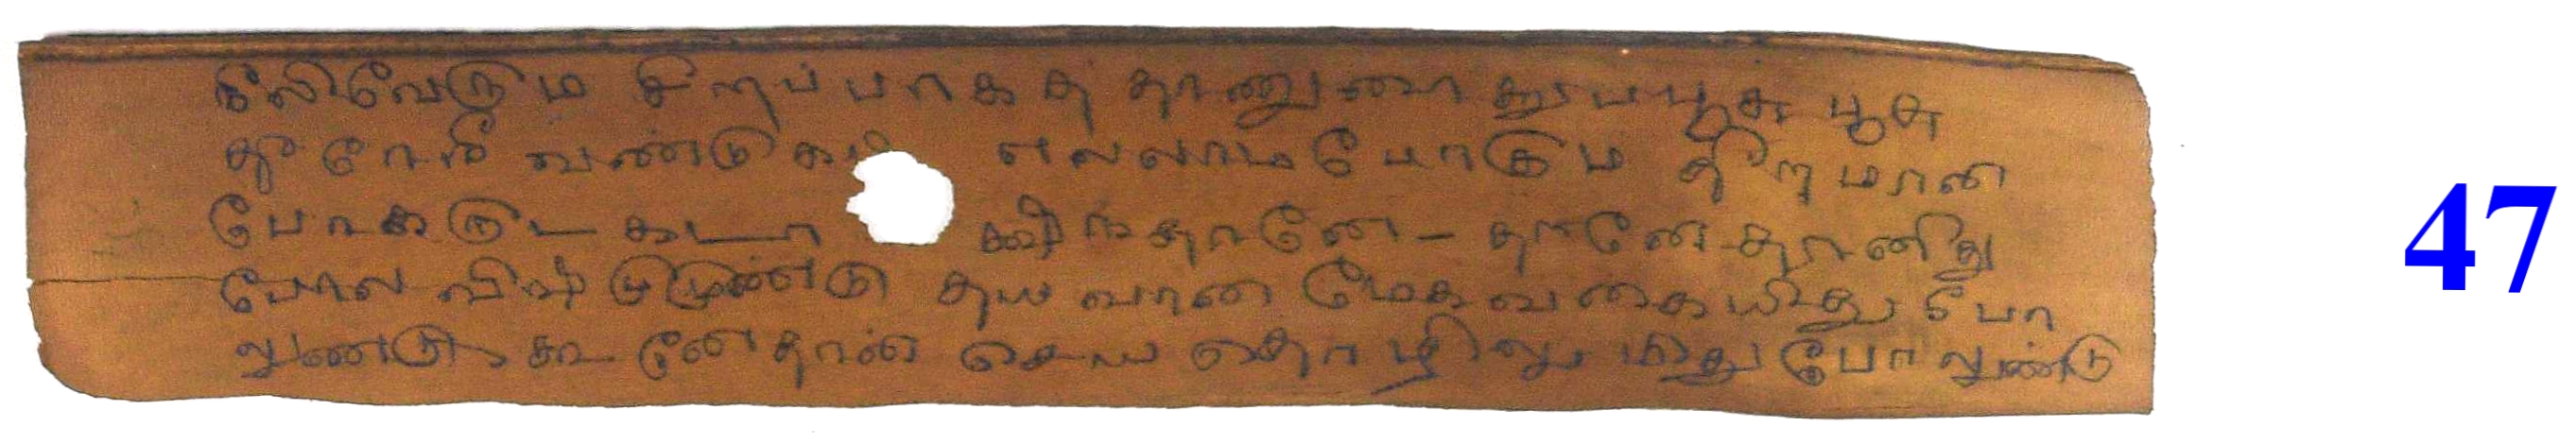 கிலிவேரும சிறப்பாகத தானுணை தூபபூசு பூசு
திரோரி வண்டுகடி எலலாமபோகும திறமான
போககுட கூடா கூர்ந்தானே - தானே தானிது
போல விஷமுமுண்டு தயவான மேகவகையிது போ
லுணடு கூனேதான செய தொழிலு மிதுபோலுண்டு
47